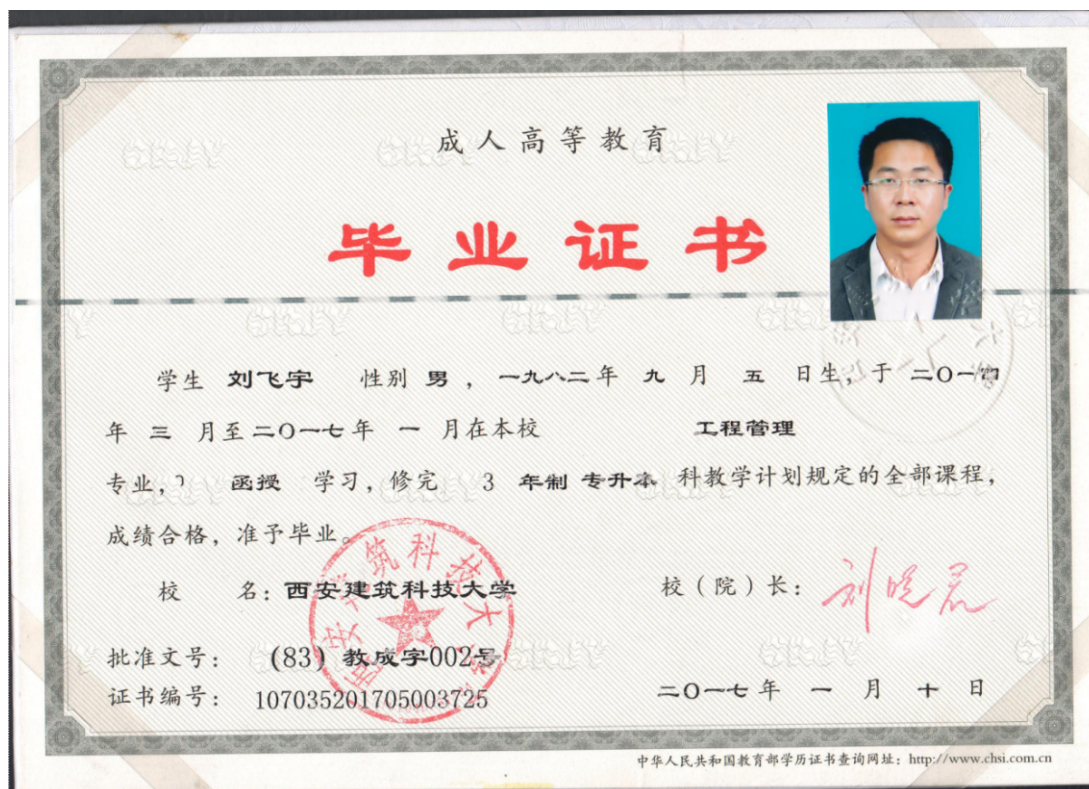 成人高等教育
毕业证书
学生 刘飞宇 性别 男 ，一九八二年 九 月 五 日生，于 二〇一四
年 三 月至二〇一七年 一 月在本校 工程管理
专业， 函授 学习，修完 3 年制 专升本 科教学计划规定的全部课程，
成绩合格，准予毕业。
校 名：西安建筑科技大学
校（院）长：刘晓君
批准文号： (83) 教成字002号
证书编号： 107035201705003725
二〇一七年 一 月 十 日
中华人民共和国教育部学历证书查询网址：http://www.chsi.com.cn
西安建筑科技大学